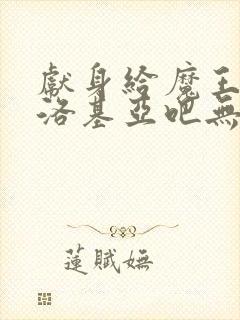 獻身給魔王
洛基亞吧無
蓮賦嫵